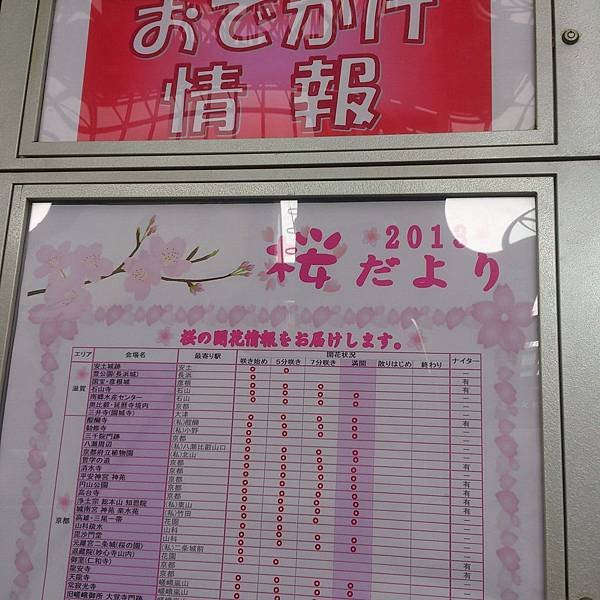 おでかけ
情報
2013
桜だより
桜の開花情報をお届けします。
エリア 会場名 最寄り駅 開花状況 ナイター
咲き始め 5分咲き 7分咲き 満開 散りはじめ 終わり
安土城跡 安土
豊公園(長浜城) 長浜
国宝・彦根城 彦根
滋賀 石山寺 石山
南郷水産センター 石山
奥比叡・延暦寺境内 京都
三井寺(園城寺) 大津
醍醐寺 (私)醍醐
勧修寺 (私)小野
三千院門跡 京都
八瀬周辺 (私)八瀬比叡山口
京都府立植物園 (私)北山
哲学の道 京都
清水寺 京都
平安神宮 神苑 京都
円山公園 京都
高台寺 京都
浄土宗 総本山 知恩院 (私)東山
城南宮 神苑 楽水苑 (私)竹田
京都 高雄・三尾一帯 花園
山科疏水 山科
毘沙門堂 山科
元離宮二条城(桜の園) (私)二条城前
退蔵院(妙心寺山内) 花園
御室(仁和寺) 京都
龍安寺 京都
天龍寺 嵯峨嵐山
常寂光寺 嵯峨嵐山
旧嵯峨御所 大覚寺門跡 嵯峨嵐山